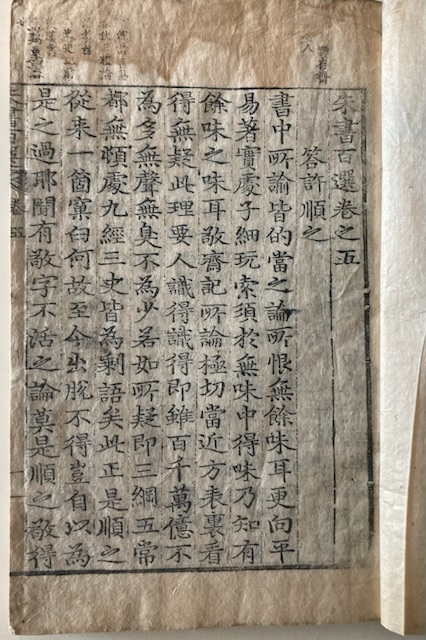 朱書百選卷之五
答許順之
書中所論皆的當之論所恨無餘味耳更向平
易著實處子細玩索須於無味中得味乃知有
餘味之味耳敬齋記所論極切當近方表裏看
得無疑此理要人識得識得即雖百千萬億不
為多無聲無臭不為少若如所疑即三綱五常
都無頓處九經三史皆為剩語矣此正是順之
從来一箇窠臼何故至今出脫不得豈自以為
是之過耶聞有敬字不活之論莫是順之敬得